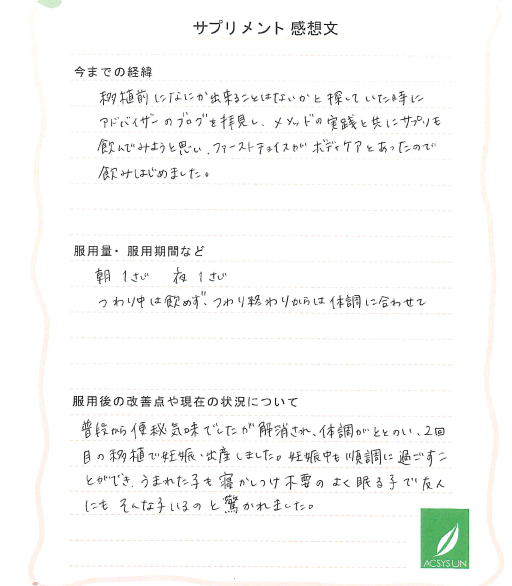 サプリメント 感想文
今までの経緯
移植前になにか出来ることはないかと探していた時に
アドバイザーのブログを拝見し、メソッドの実践と共にサプリも
飲んでみようと思い、ファーストチョイスがボディケアとあったので
飲みはじめました。
服用量・服用期間など
朝 1さじ 夜 1さじ
つわり中は飲めず、つわり終わりからは体調に合わせて
服用後の改善点や現在の状況について
普段から便秘気味でしたが解消され、体調がととのい、2回
目の移植で妊娠・出産しました。妊娠中も順調に過ごすこ
とができ、うまれた子も寝かしつけ不要のよく眠る子で友人
にもそんな子いるのと驚かれました。
ACSYSUN